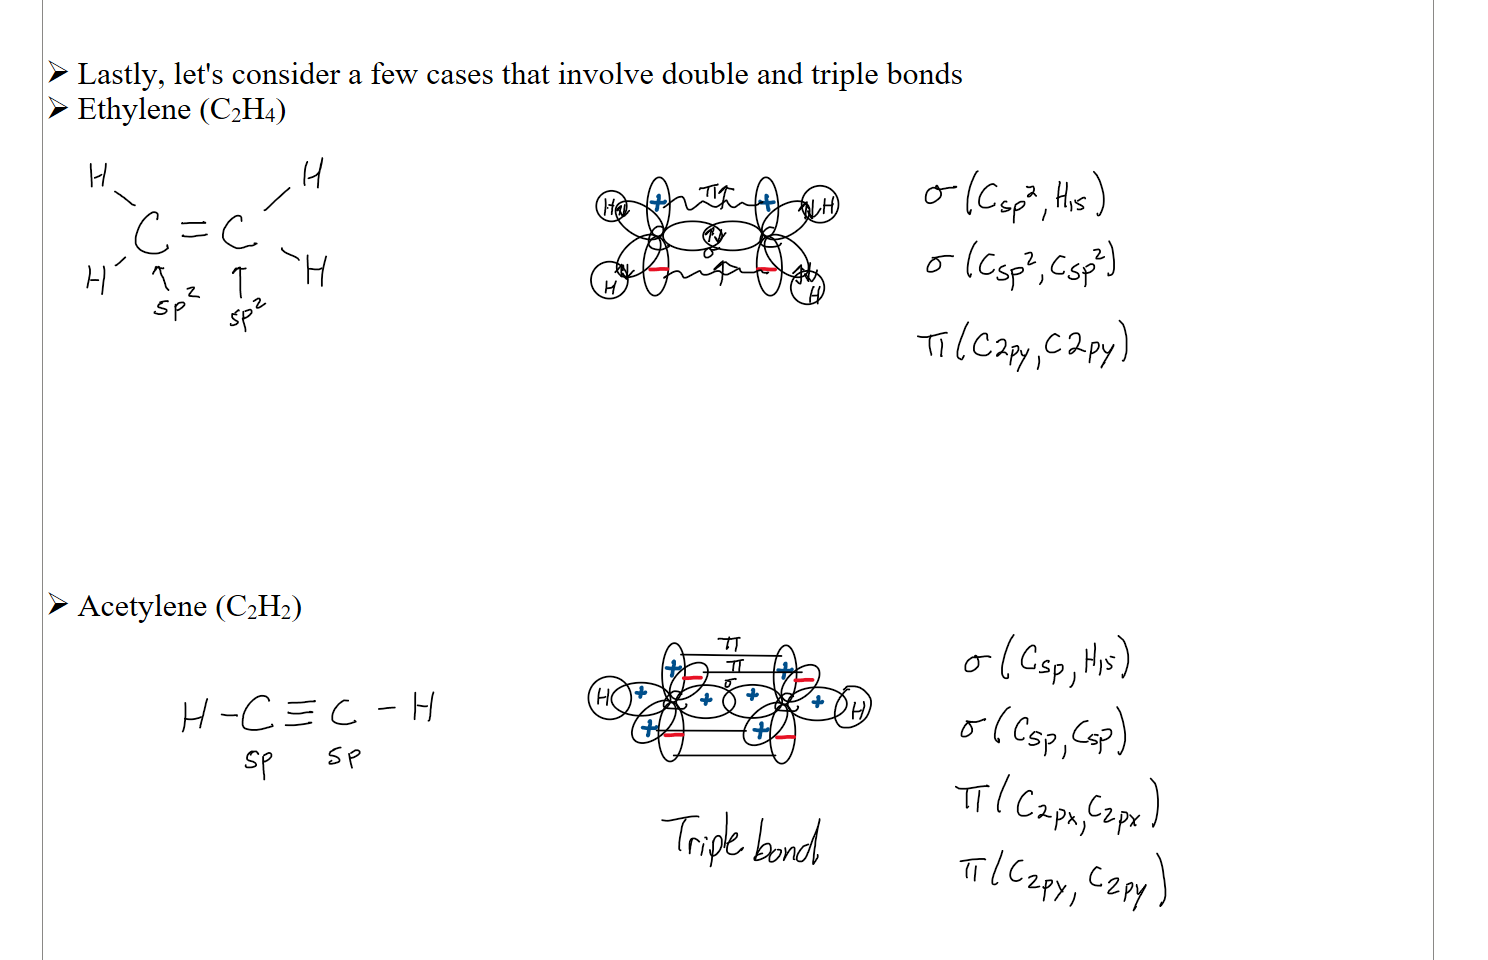 ➤ Lastly, let's consider a few cases that involve double and triple bonds
➤ Ethylene (C₂H₄)
H H
C = C
H H
↑ ↑
sp² sp²
π
H + + H
↑↓
σ
H − − H
σ (Csp², H1s)
σ (Csp², Csp²)
π (C2py, C2py)
➤ Acetylene (C₂H₂)
H - C ≡ C - H
sp sp
π
+ π +
− σ −
H + + + + H
+ − + −
Triple bond
σ (Csp, H1s)
σ (Csp, Csp)
π (C2px, C2px)
π (C2py, C2py)